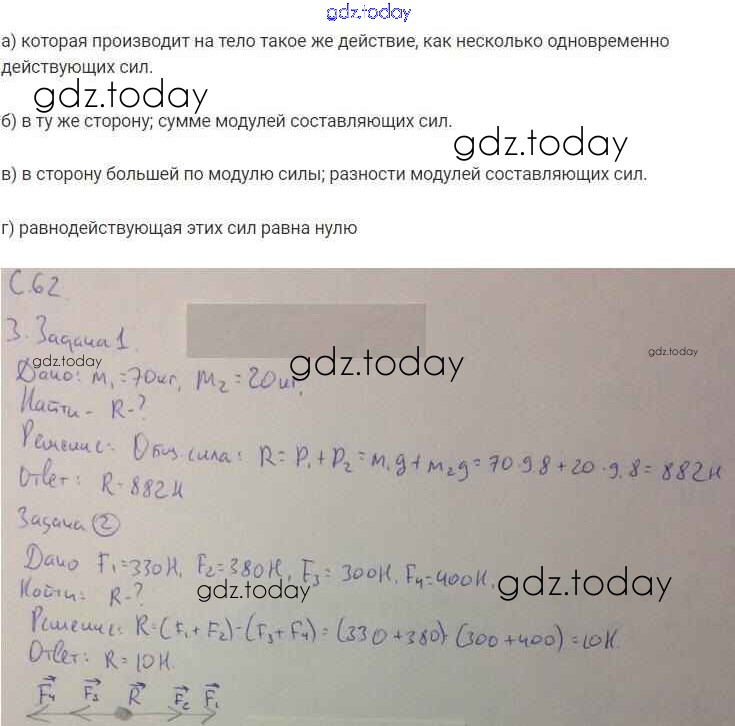 gdz.today
а) которая производит на тело такое же действие, как несколько одновременно
действующих сил.
gdz.today
б) в ту же сторону; сумме модулей составляющих сил.
gdz.today
в) в сторону большей по модулю силы; разности модулей составляющих сил.
г) равнодействующая этих сил равна нулю
С.62.
3. Задача 1.
gdz.today gdz.today gdz.today
Дано: m₁=70кг, m₂=20кг,
Найти - R-?
Решение: Общ. сила: R= P₁+P₂=m₁g+m₂g=70·9,8+20·9,8=882Н
Ответ: R=882Н
Задача 2
Дано F₁=330Н, F₂=380Н, F₃=300Н, F₄=400Н,
gdz.today gdz.today
Найти: R-?
Решение: R=(F₁+F₂)-(F₃+F₄)=(330+380)-(300+400)=10Н.
Ответ: R=10Н.
F₄ F₃ R F₂ F₁
gdz.today